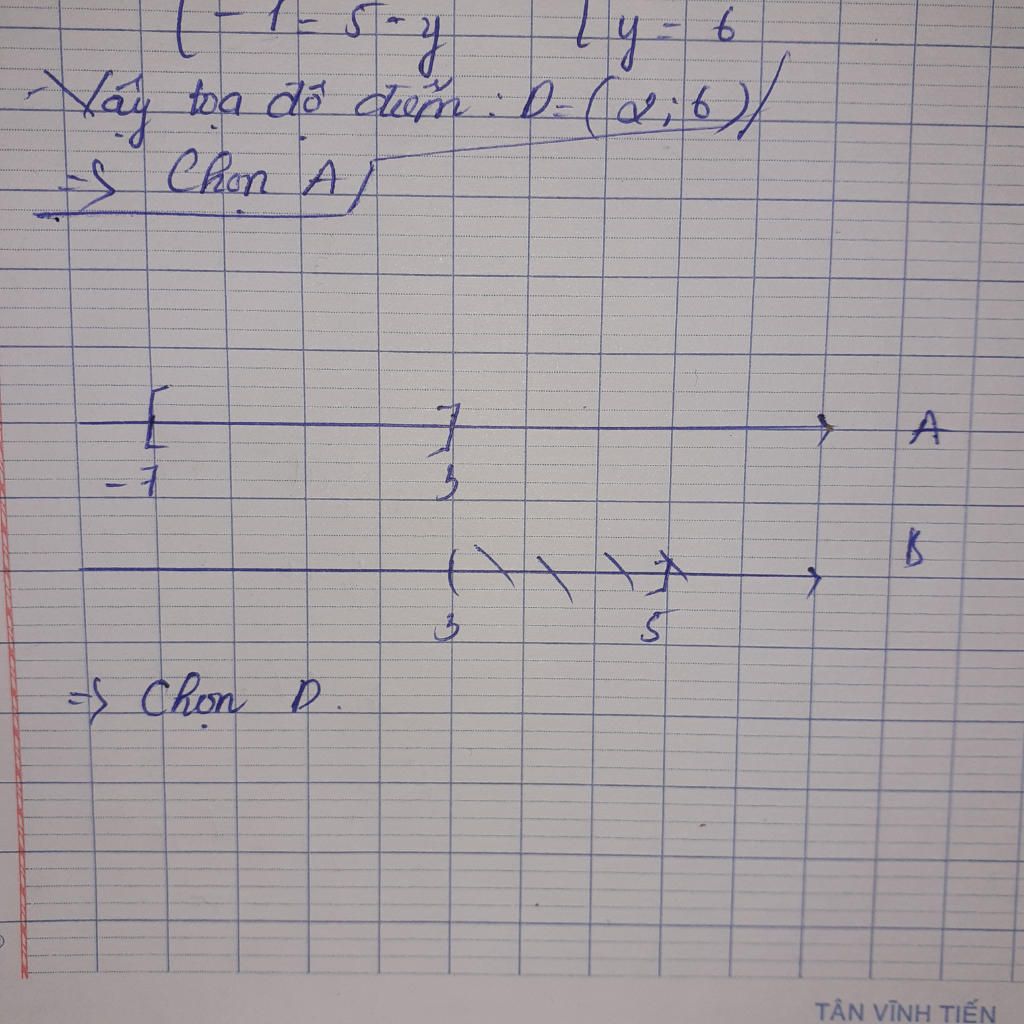 { -1 = 5 - y { y = 6
- Vậy tọa độ điểm : D = (2; 6)
=> Chọn A
[ ] A
-7 3
( ] B
3 5
=> Chọn D.
TÂN VĨNH TIẾN